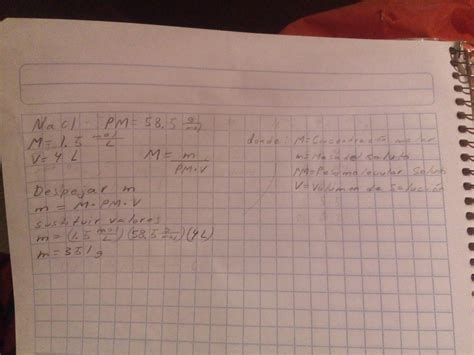 NaCl PM = 58.5 g/mol
M = 1.5 mol/L
V = 4 L M = m / PM·V
donde: M = Concentración molar
m = Masa del Soluto
PM = Peso molecular Soluto
V = Volumen de Solución
Despejar m
m = M·PM·V
sustituir valores
m = (1.5 mol/L)(58.5 g/mol)(4L)
m = 351 g